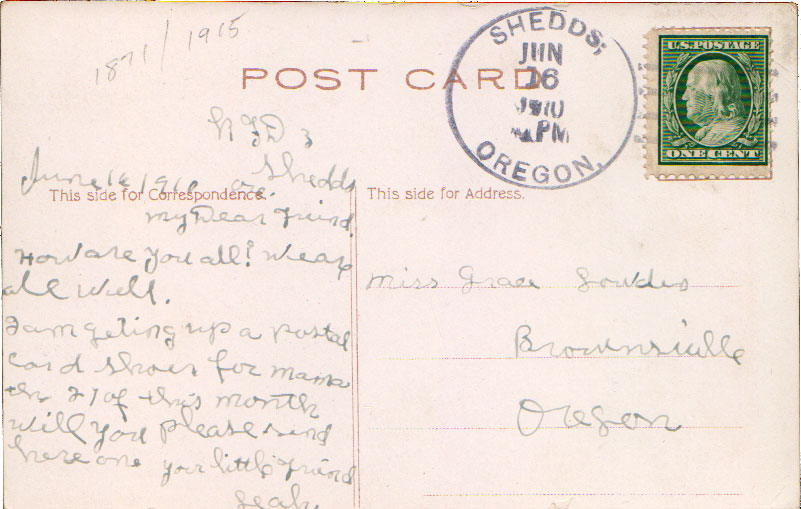 1871 / 1915
POST CARD
SHEDDS,
JUN
16
1910
PM
OREGON.
U.S. POSTAGE
ONE CENT
RFD 3
Shedds
June 16 1910 Ore.
This side for Correspondence.
My Dear Friend.
How are you all? we are
all well.
I am geting up a postal
card shower for mama
the 21 of this month
will you please send
here one your little friend
This side for Address.
Miss Grace
Brownsville
Oregon